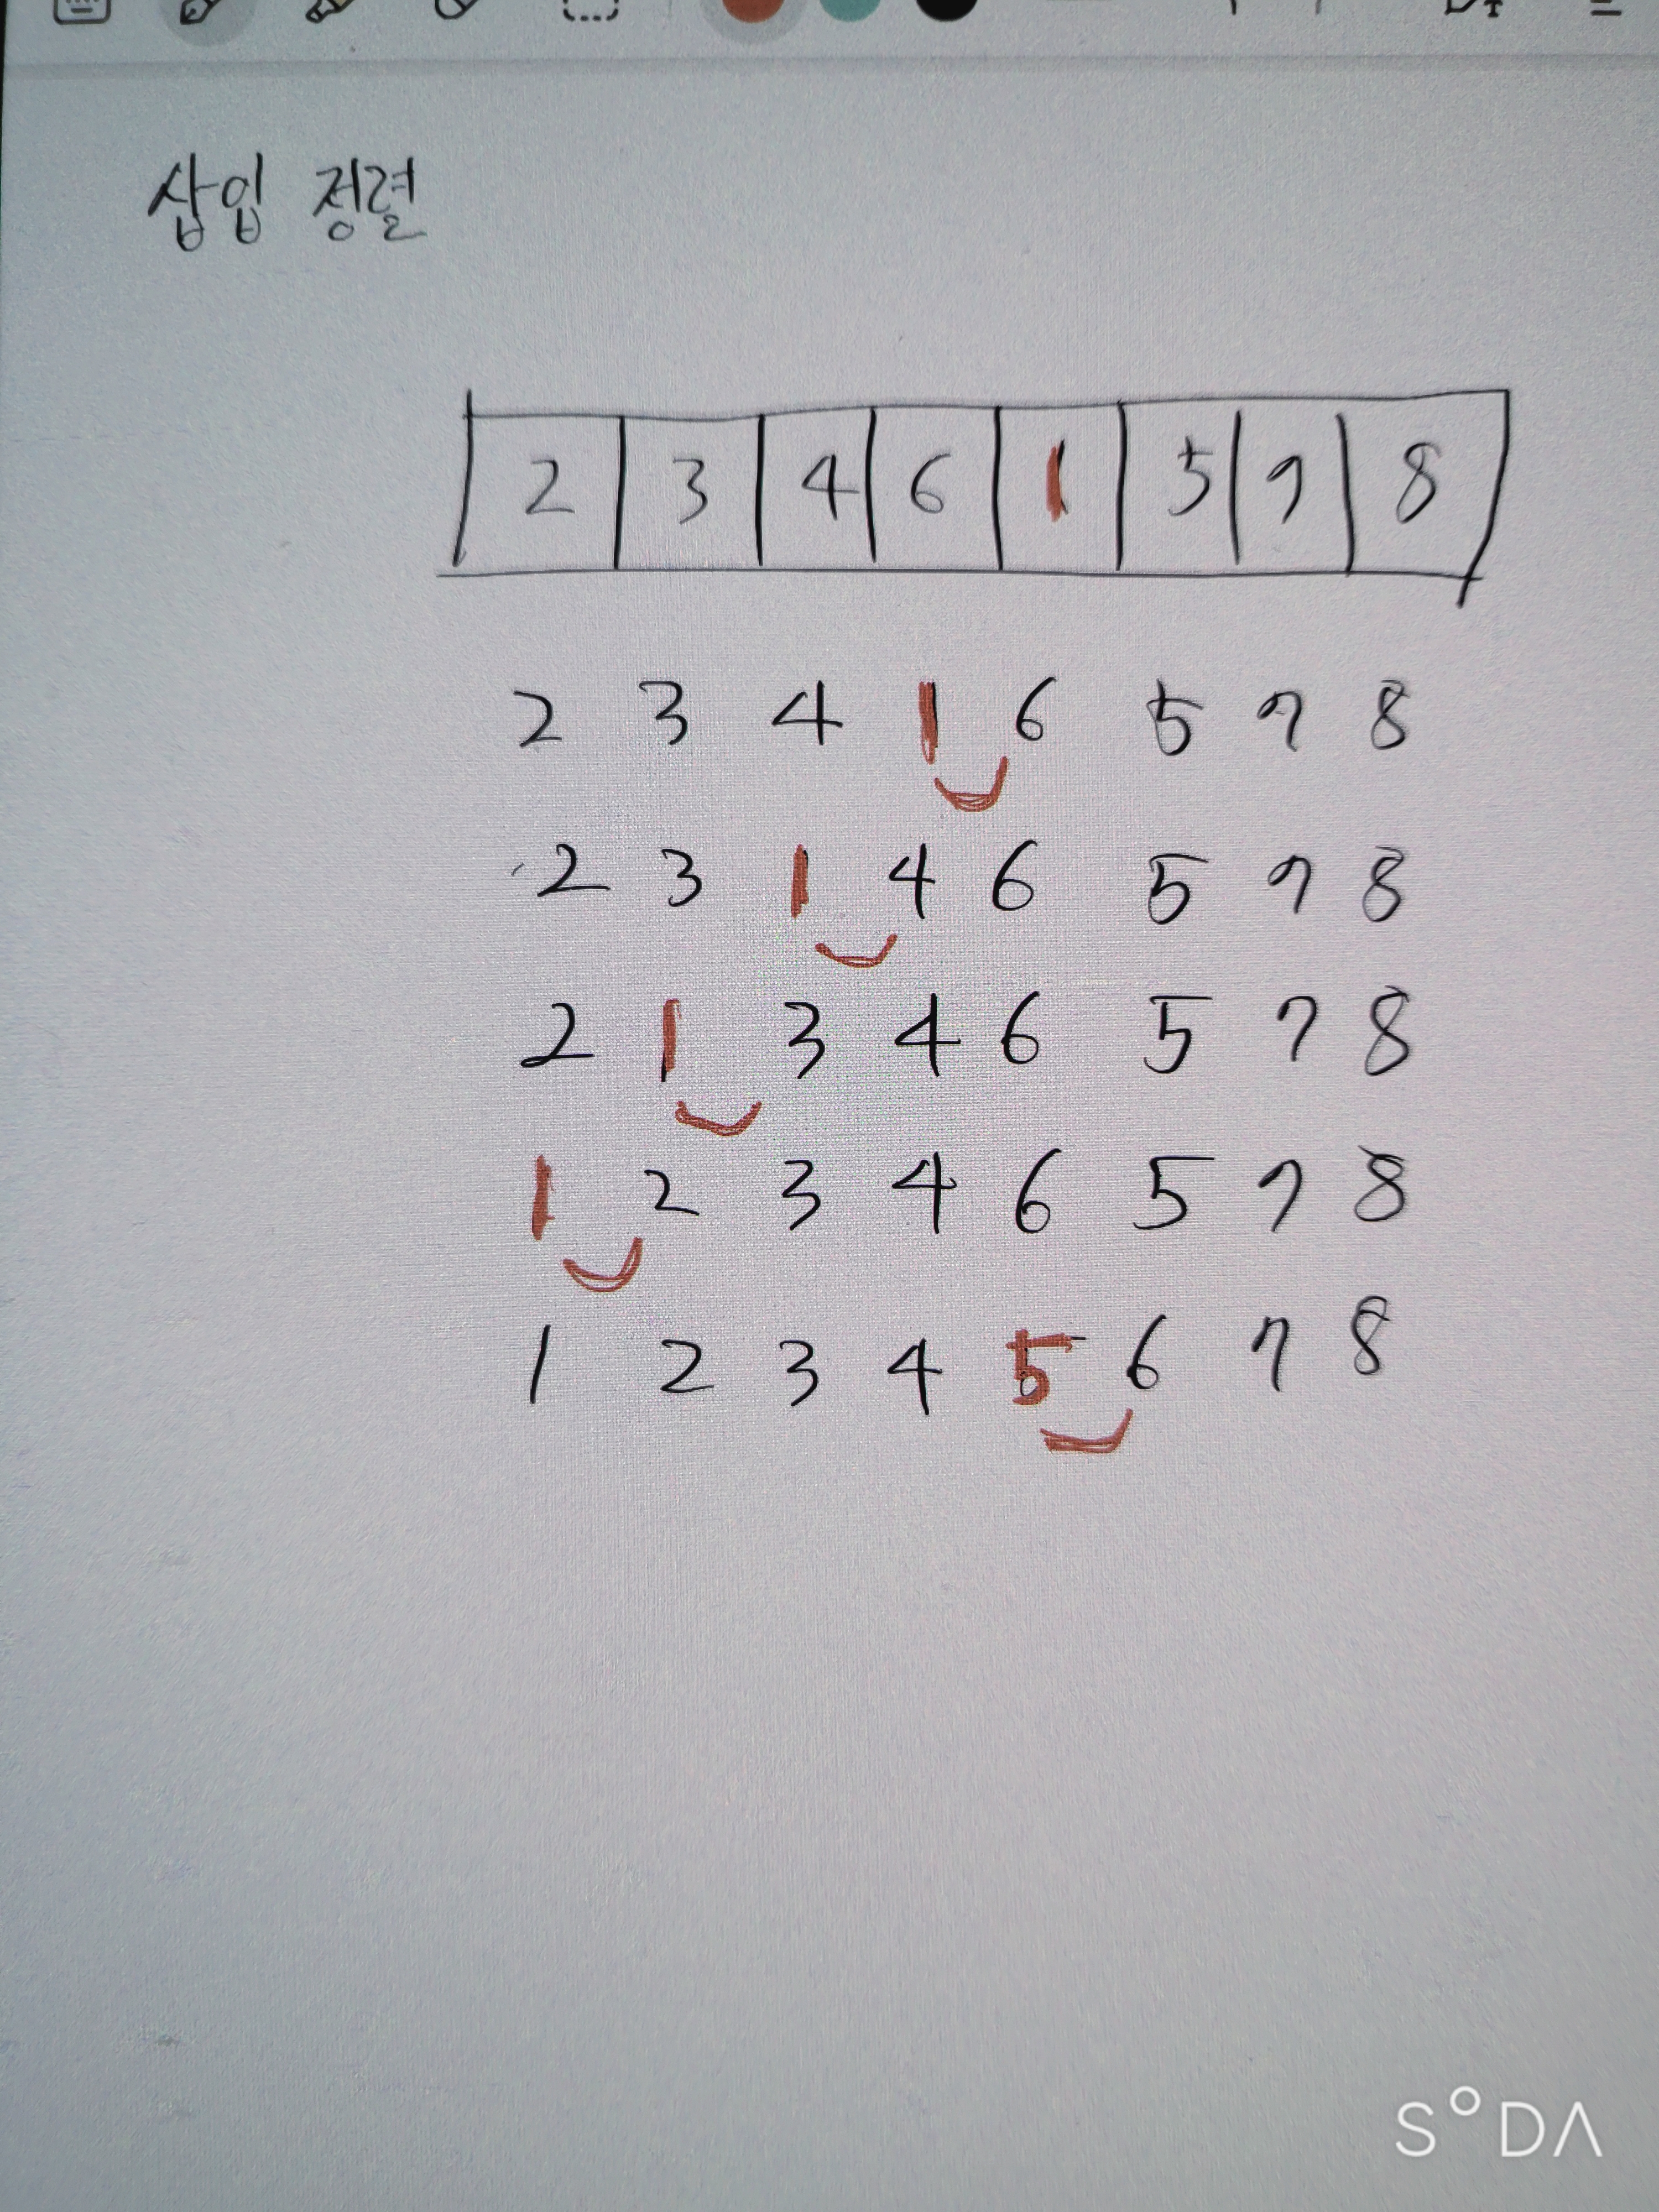 삽입 정렬
2 3 4 6 1 5 7 8
2 3 4 1 6 5 7 8
2 3 1 4 6 5 7 8
2 1 3 4 6 5 7 8
1 2 3 4 6 5 7 8
1 2 3 4 5 6 7 8
SODA